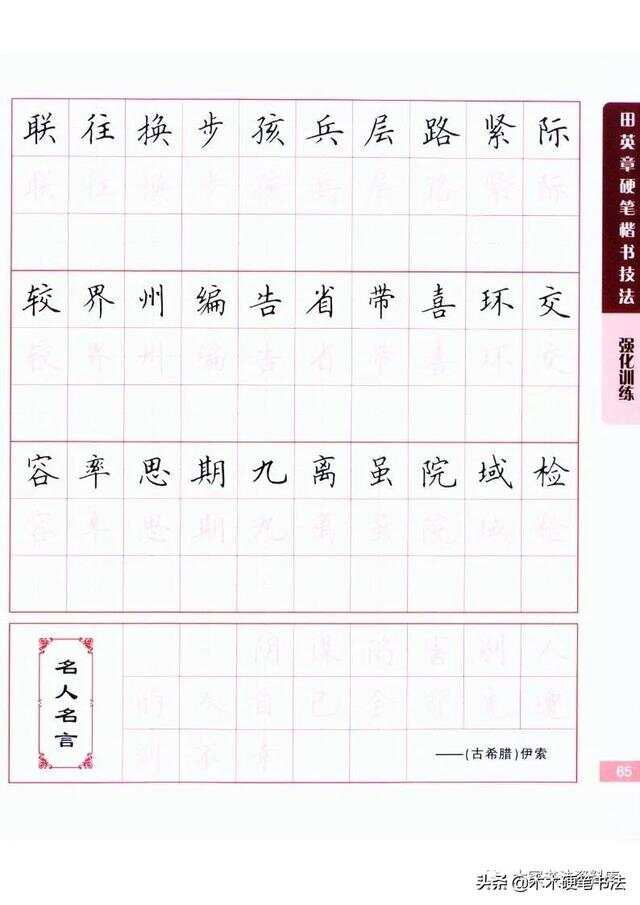 联往换步孩兵层路紧际
联往换步孩兵层路紧际
较界州编告省带喜环交
较界州编告省带喜环交
容率思期九离虽院域检
容率思期九离虽院域检
名人名言
阴谋陷害别人
的人自己会
到不幸
——(古希腊)伊索
田英章硬笔楷书技法
强化训练
65
头条@木木硬笔书法